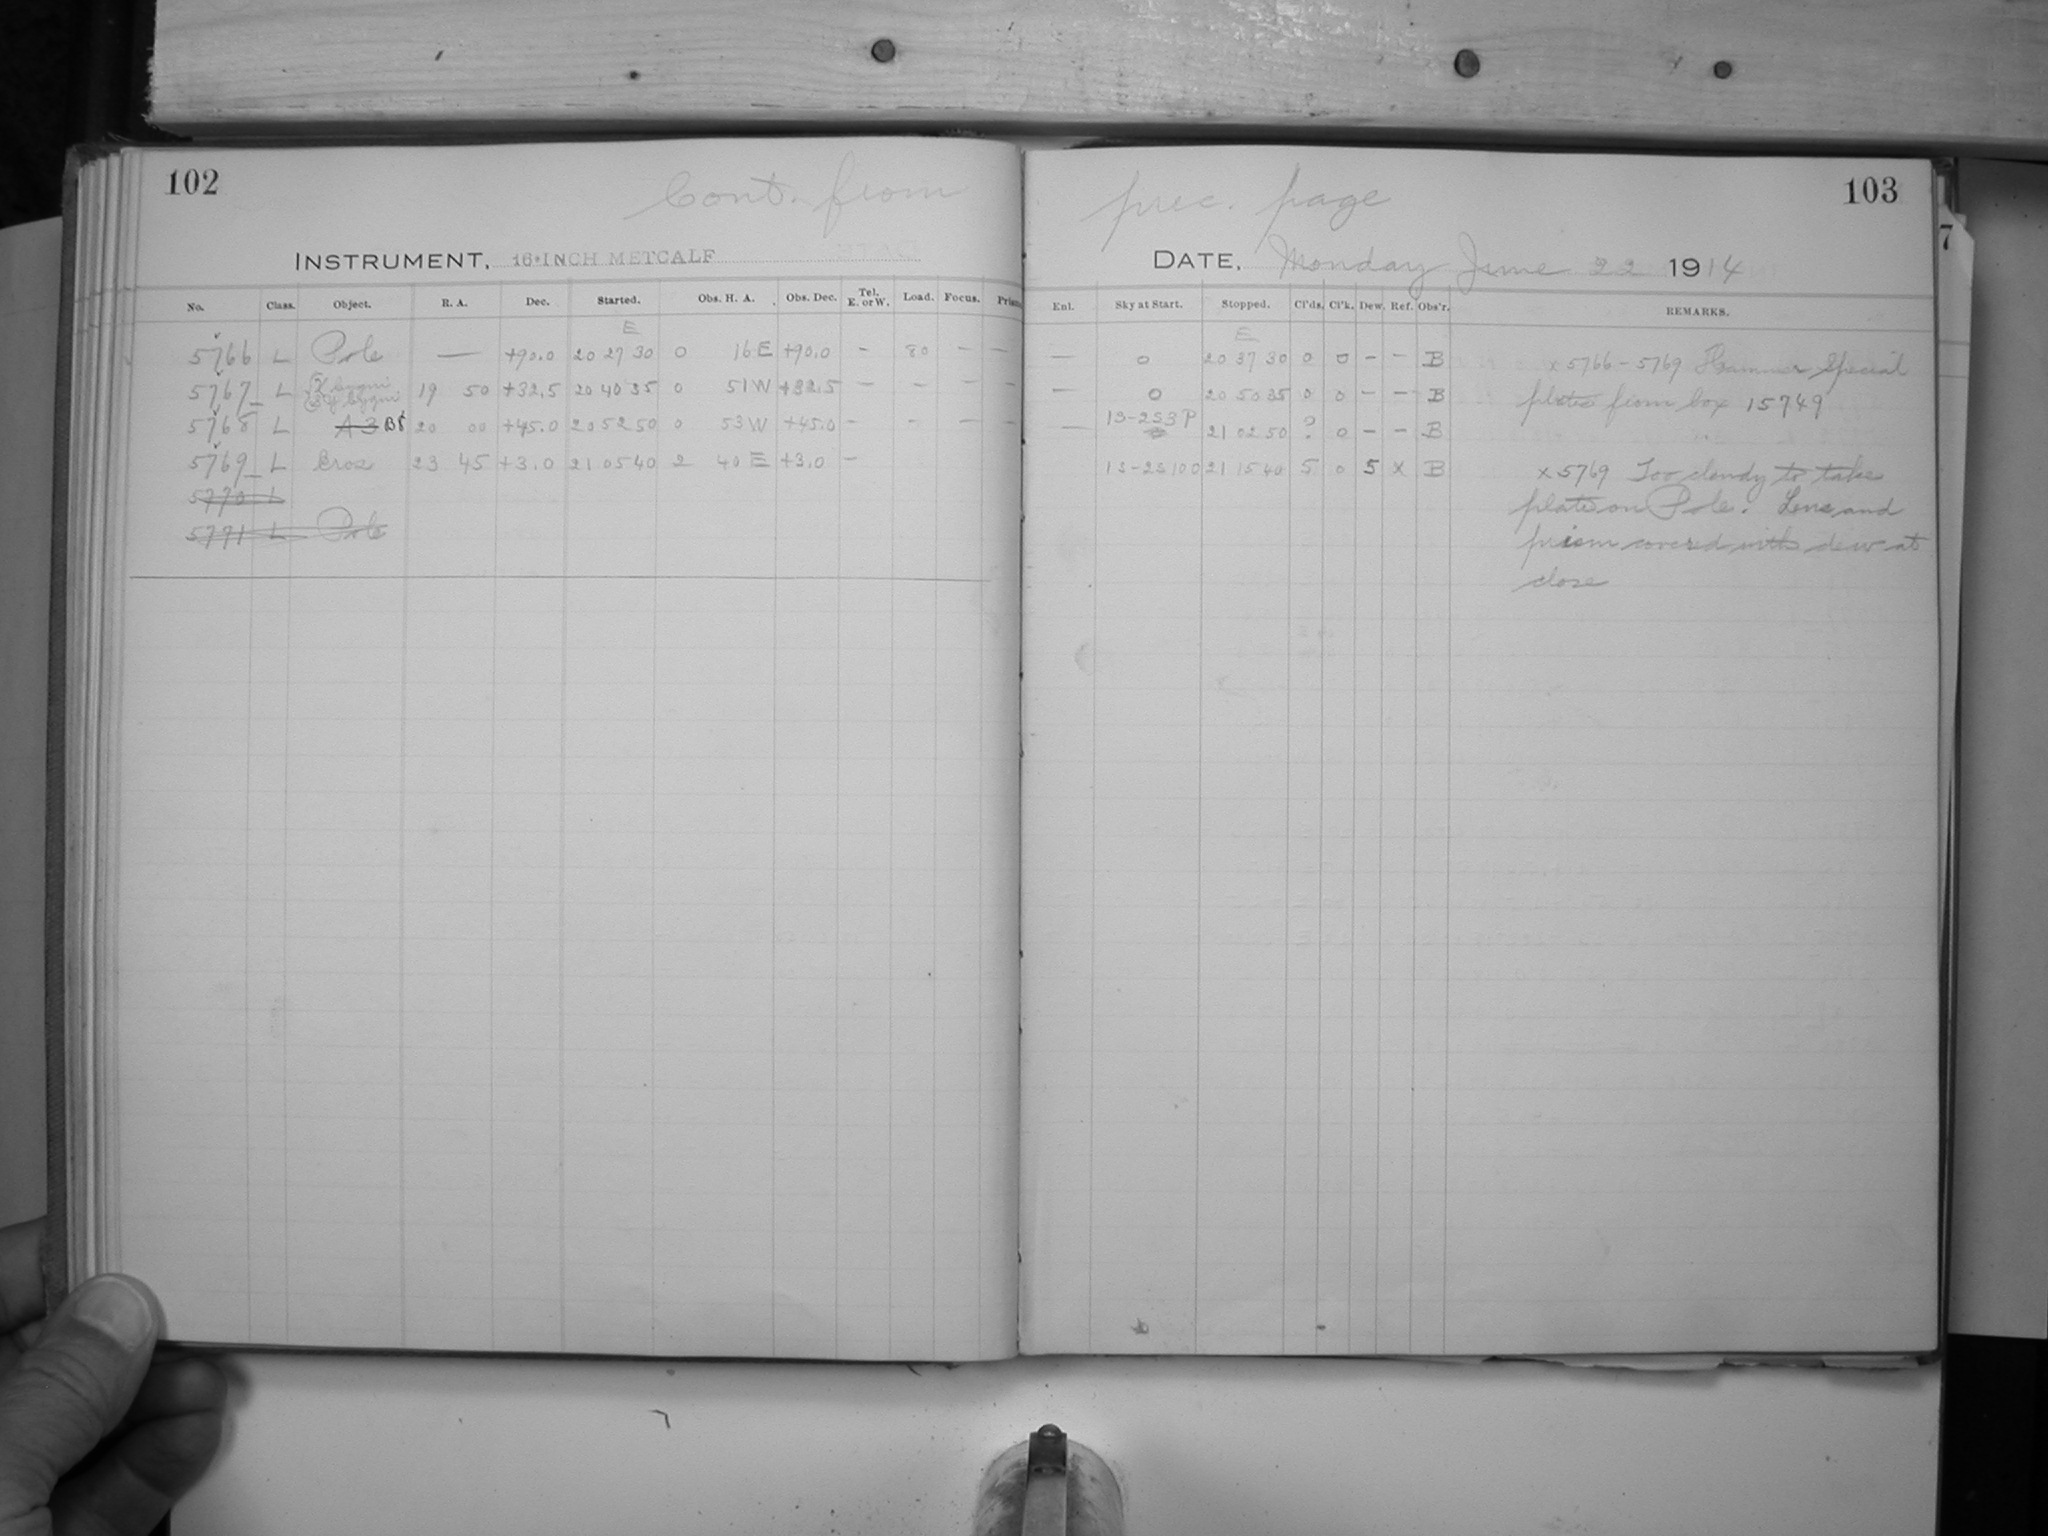 102
Cont. from
INSTRUMENT, 16-INCH METCALF
No. Class. Object. R. A. Dec. Started. Obs. H. A. Obs. Dec. Tel. E. or W. Load. Focus. Prism
E
5766 L Pole — +90.0 20 27 30 0 16 E +90.0 – 80 – –
5767 L χ Cygni 19 50 +32.5 20 40 35 0 51 W +32.5 – – – –
5768 L A 3 20 00 +45.0 20 52 50 0 53 W +45.0 – – – –
5769 L Eros 23 45 +3.0 21 05 40 2 40 E +3.0 –
5770 L
5771 L Pole
prec. page
103
7
DATE, Monday June 22 1914
Enl. Sky at Start. Stopped. Cl'ds. Cl'k. Dew. Ref. Obs'r. REMARKS.
E
— 0 20 37 30 0 0 – – B x 5766 – 5769 Hammer Special
— 0 20 50 35 0 0 – – B plates from box 15749
— 13-2S3P 21 02 50 ? 0 – – B
13-2S100 21 15 40 5 0 5 x B x 5769 Too cloudy to take
plate on Pole. Lens and
prism covered with dew at
close